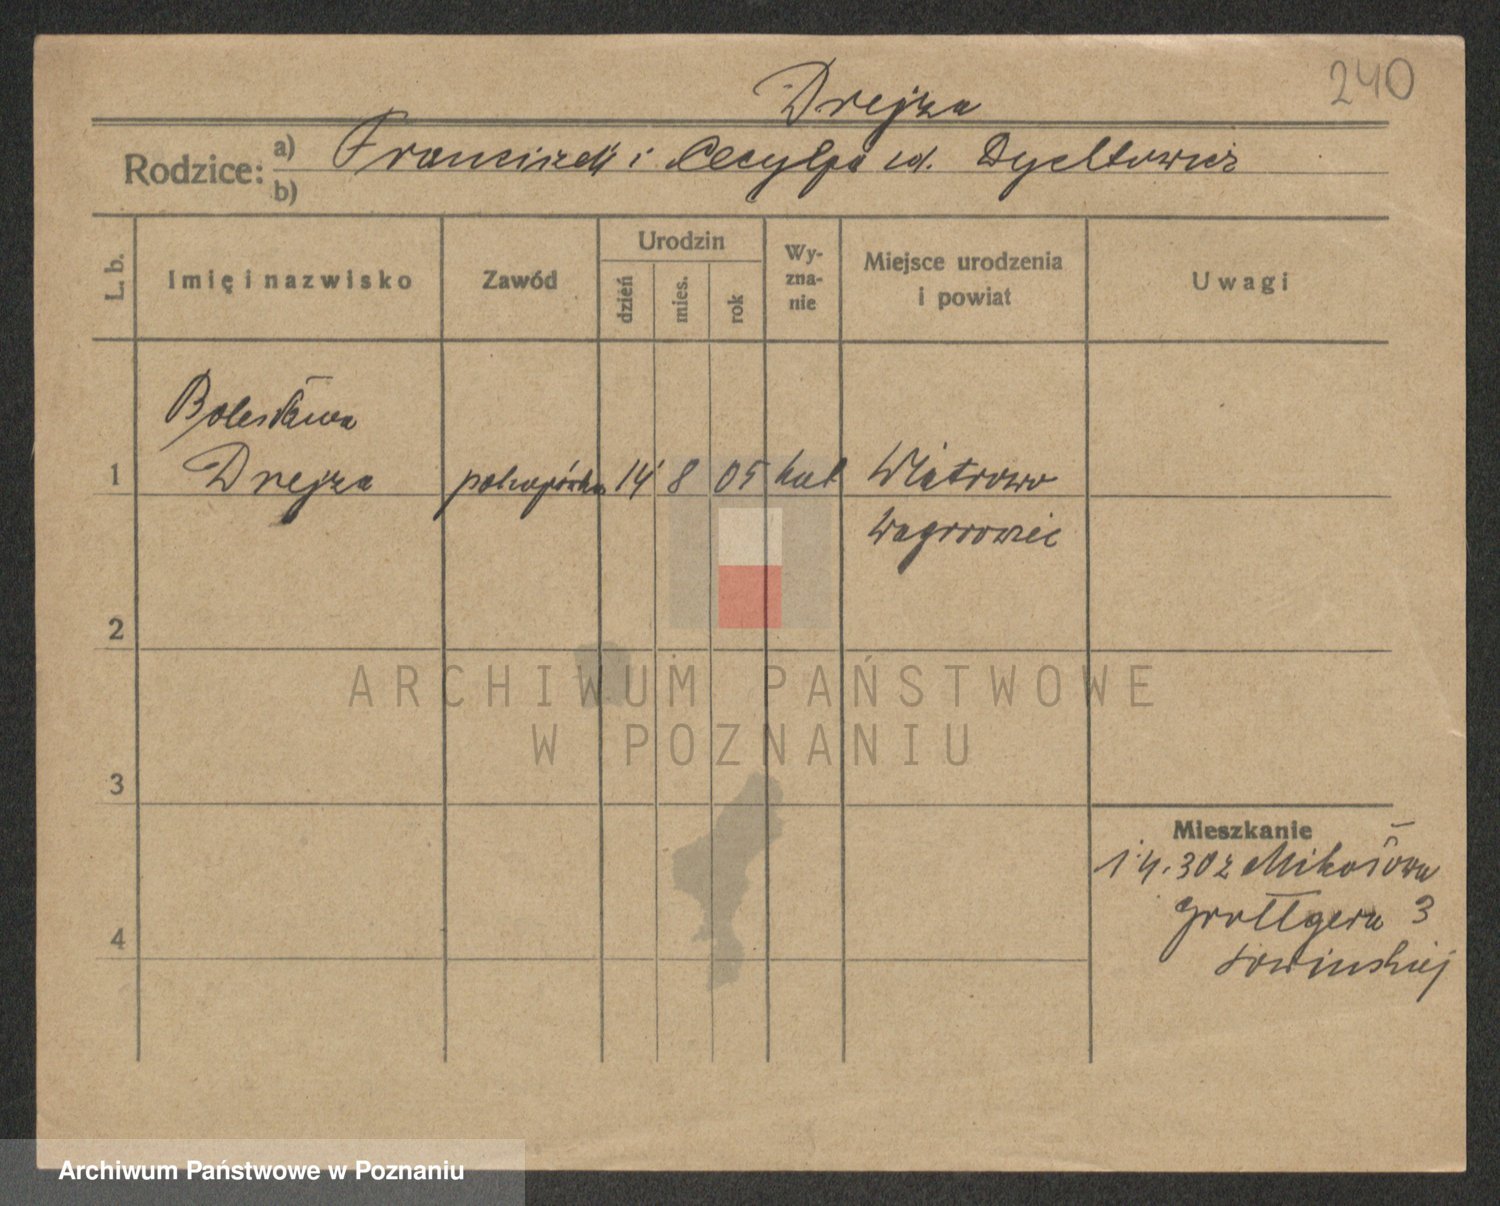 240
Drejza
Rodzice: a) Franciszek i Cecylja
b)
L. b.
Imię i nazwisko
Zawód
Urodzin
dzień
mies.
rok
Wy-
zna-
nie
Miejsce urodzenia
i powiat
Uwagi
Bolesława
1 Drejza 14 8 05 kat Wiatrowo
Wągrowiec
2
3
4
ARCHIWUM PAŃSTWOWE
W POZNANIU
Mieszkanie
1.4.30 z
Grottgera 3
Archiwum Państwowe w Poznaniu